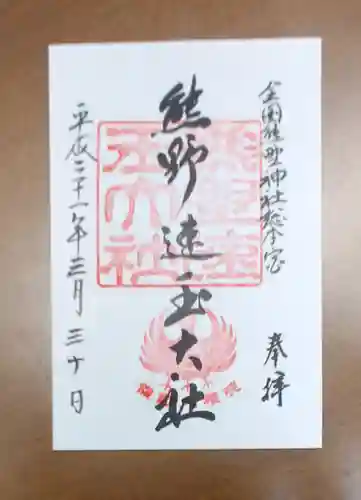 全国熊野神社総本宮
奉拝
熊野速玉大社
平成二十一年三月三十日